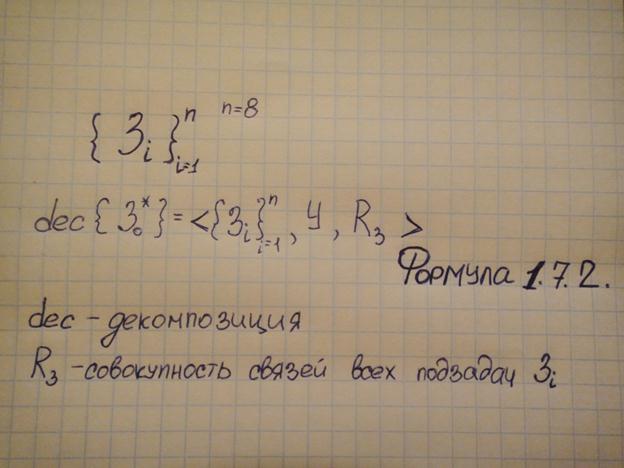 { Зi }ⁿi=1 n=8
dec { З₀* } = < { Зi }ⁿi=1 , У , RЗ >
Формула 1.7.2.
dec - декомпозиция
RЗ - совокупность связей всех подзадач Зi